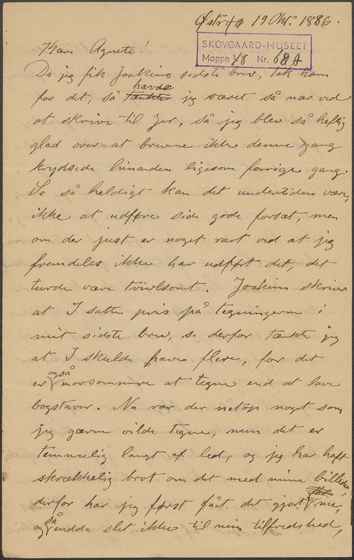 19 Okt. 1886.
SKOVGAARD-MUSEET
Mappe 48 Nr. 68 A
Kære Agnete!
Da jeg fik Joakims sidste brev, tak ham
for det, så tænkte havde jeg været så nær ved
at skrive til Jer, så jeg blev så hæftig
glad over at brevene ikke denne gang
krydsede hinanden ligesom forrige gang.
Så heldigt kan det undertiden være,
ikke at udføre sine gode forsæt, men
om der just er noget rart ved at jeg
fremdeles ikke har udført det, det
turde være tvivlsomt. Joakim skriver
at I satte pris på tegningerne i
mit sidste brev, se derfor tænkte jeg
at I skulde have flere, for det
er også morsommere at tegne end at lave
bogstaver. Nu var der netop noget som
jeg gærne vilde tegne, men det er
temmelig langt af led, og jeg har haft
skrækkelig travlt om det med mine billeder
derfor har jeg først fået det gjort nu,
og så endda slet ikke til min tilfredshed,